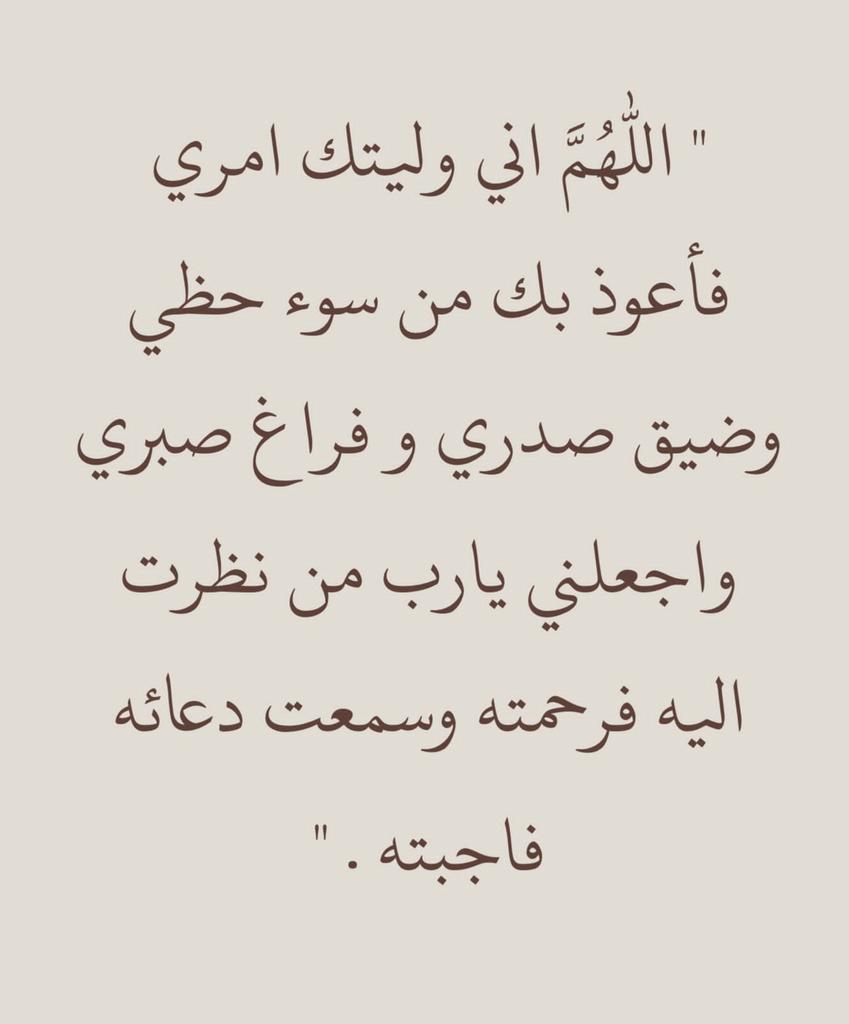 " اللّٰهُمَّ اني وليتك امري
فأعوذ بك من سوء حظي
وضيق صدري و فراغ صبري
واجعلني يارب من نظرت
اليه فرحمته وسمعت دعائه
فاجبته . "